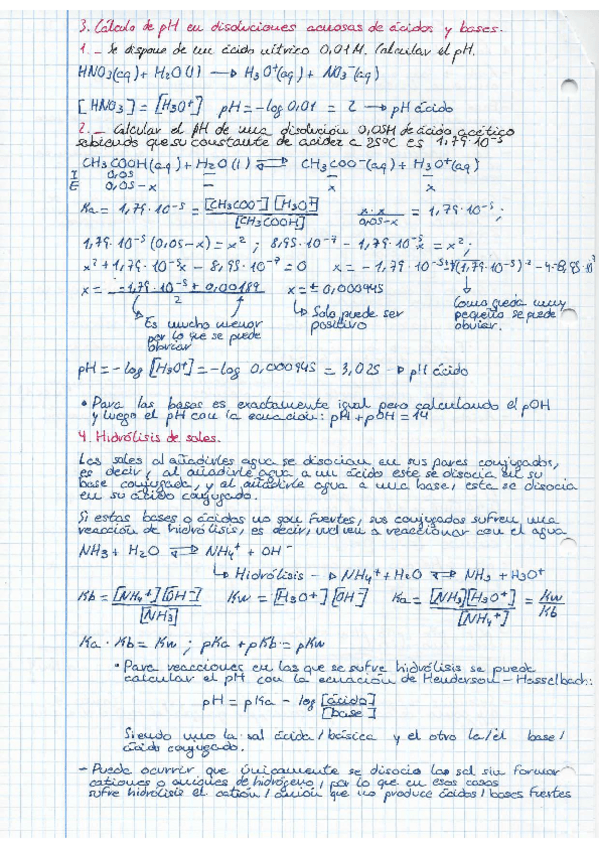 3. Cálculo de pH en disoluciones acuosas de ácidos y bases.
1._ Se dispone de un ácido nítrico 0,01M. Calcular el pH.
HNO3(aq) + H2O(l) → H3O+(aq) + NO3-(aq)
[HNO3] = [H3O+] pH = -log 0,01 = 2 → pH ácido
2._ Calcular el pH de una disolución 0,05M de ácido acético
sabiendo que su constante de acidez a 25ºC es 1,79·10-5
CH3COOH(aq) + H2O(l) ⇌ CH3COO-(aq) + H3O+(aq)
I 0,05 — — —
E 0,05-x — x x
Ka = 1,79·10-5 = [CH3COO-][H3O+] / [CH3COOH] x·x / 0,05-x = 1,79·10-5;
1,79·10-5 (0,05-x) = x²; 8,95·10-7 - 1,79·10-5x = x²;
x² + 1,79·10-5x - 8,95·10-7 = 0 x = -1,79·10-5
x = -1,79·10-5 ± 0,00189 / 2 x = ± 0,000945
↳ Solo puede ser
positivo
Como queda muy
pequeño se puede
obviar.
Es mucho menor
por lo que se puede
obviar
pH = -log [H3O+] = -log 0,000945 = 3,025 → pH ácido
• Para las bases es exactamente igual pero calculando el pOH
y luego el pH con la ecuación: pH + pOH = 14
4. Hidrólisis de sales.
Las sales al añadirles agua se disocian en sus pares conjugados,
es decir, al añadirle agua a un ácido este se disocia en su
base conjugada, y al añadirle agua a una base, esta se disocia
en su ácido conjugado.
Si estas bases o ácidos no son fuertes, sus conjugados sufren una
reacción de hidrólisis, es decir, vuelven a reaccionar con el agua
NH3 + H2O ⇌ NH4+ + OH-
↳ Hidrólisis → NH4+ + H2O ⇌ NH3 + H3O+
Kb = [NH4+][OH-] / [NH3] Kw = [H3O+][OH-] Ka = [NH3][H3O+] / [NH4+] = Kw / Kb
Ka · Kb = Kw ; pKa + pKb = pKw
• Para reacciones en las que se sufre hidrólisis se puede
calcular el pH con la ecuación de Henderson-Hasselbach:
pH = pKa - log [ácido] / [base]
Siendo uno la sal ácida/básica y el otro la/el base/
ácido conjugado.
- Puede ocurrir que únicamente se disocia la sal sin formar
cationes o aniones de hidrógeno, por lo que en esos casos
sufre hidrólisis el catión/anión que no produce ácidos/bases fuertes